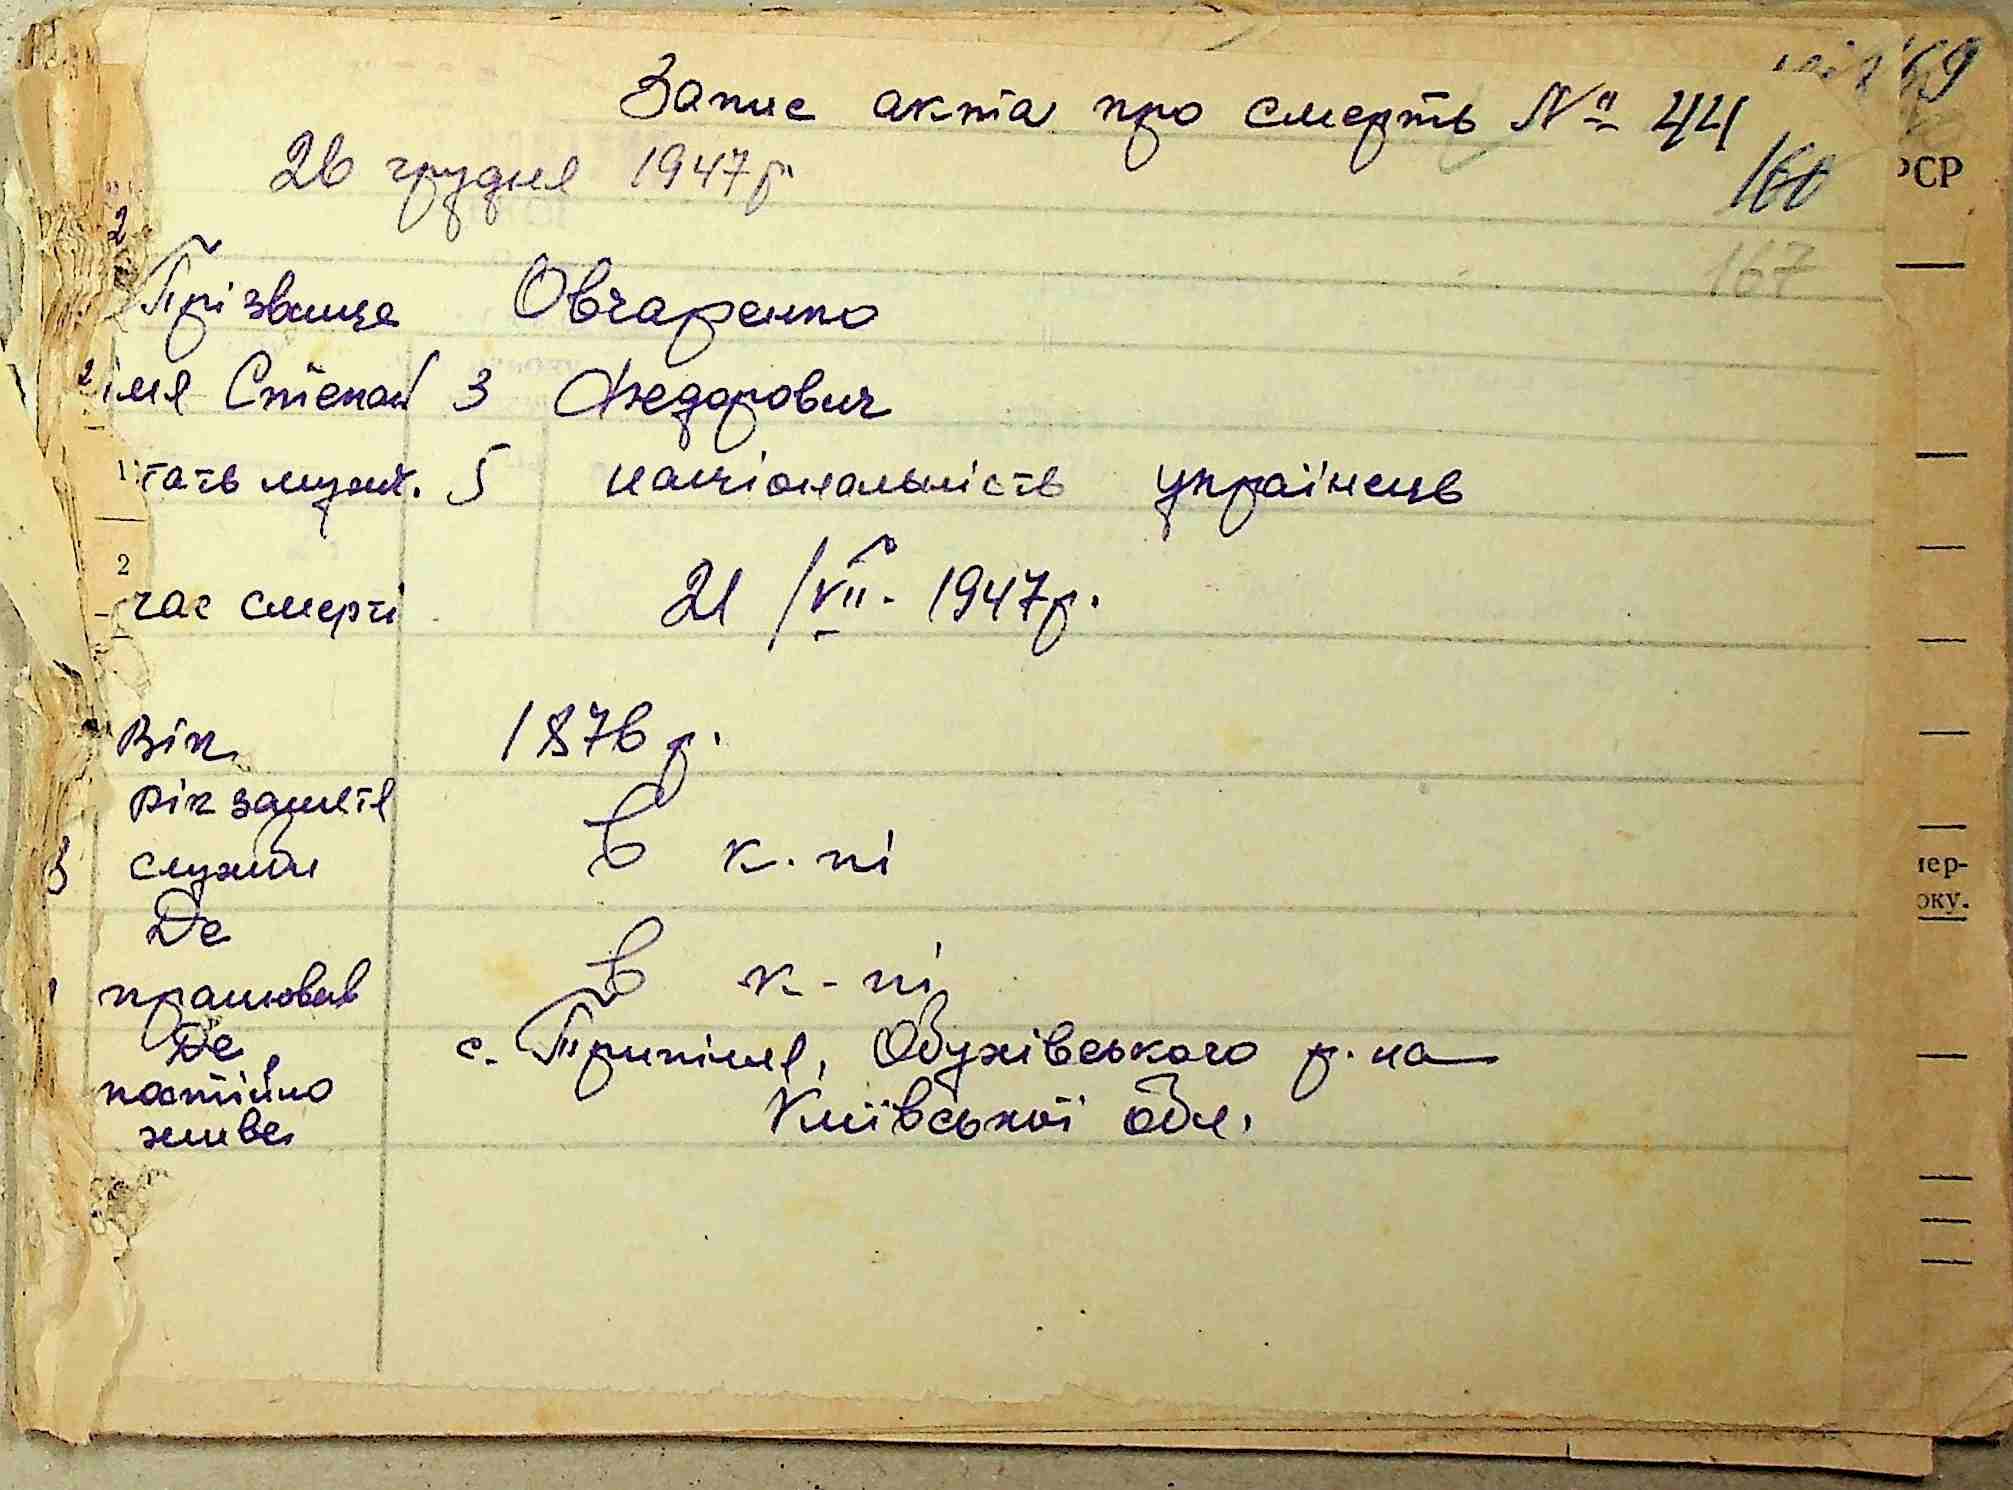 159
Запис акта про смерть № 44
26 грудня 1947 р.
160
РСР
167
Прізвище Овчаренко
імя Степан 3 Федорович
тать муж. 5 національність українець
2
час смерті 21/VII - 1947 р.
Вік 1876 р.
Рік заняття
служби в к-пі
іер-
оку.
Де
працював в к-пі
Де
постійно
живе
с. Трипілля, Обухівського р-на
Київської обл.